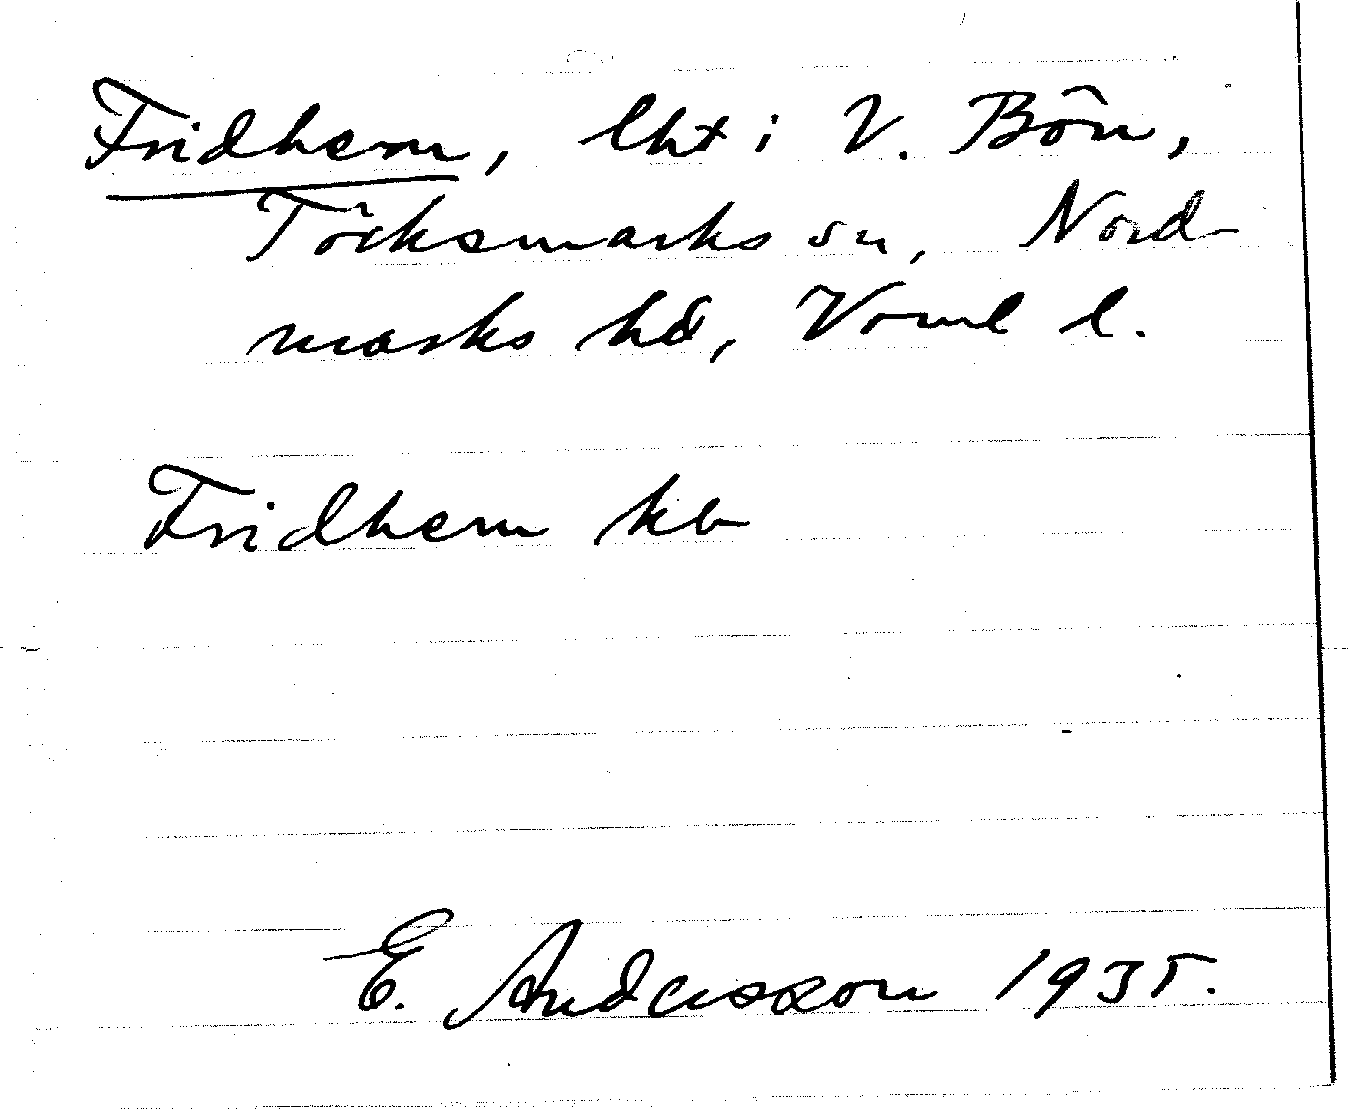 Fridhem, lht i V. Bön,
Töcksmarks sn, Nord-
marks hd, Värml l.
Fridhem kb
E. Andersson 1935.